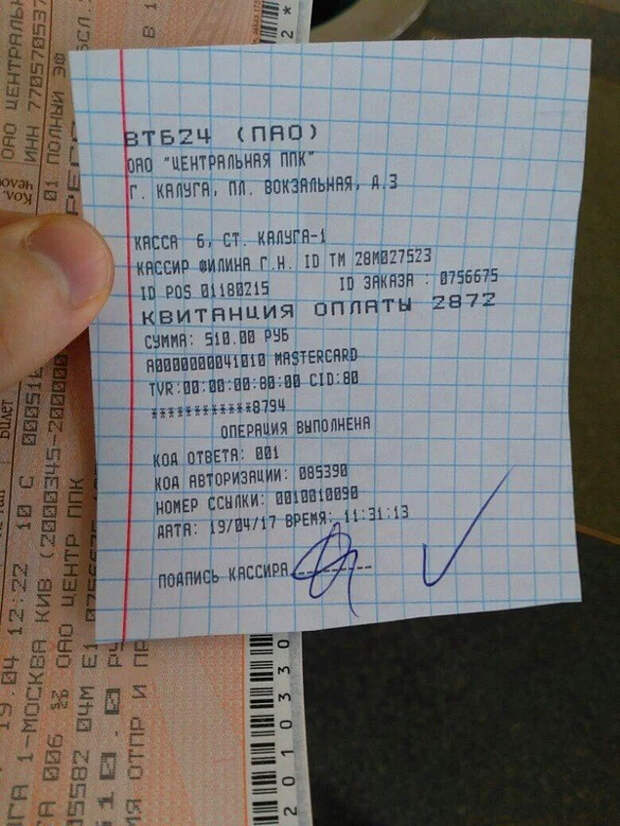 ВТБ24 (ПАО)
ОАО "ЦЕНТРАЛЬНАЯ ППК"
Г. КАЛУГА, ПЛ. ВОКЗАЛЬНАЯ, Д.3
КАССА 6, СТ. КАЛУГА-1
КАССИР ФИЛИНА Г.Н. ID TM 28M027523
ID POS 01180215 ID ЗАКАЗА : 0756675
КВИТАНЦИЯ ОПЛАТЫ 2872
СУММА: 510.00 РУБ
A0000000041010 MASTERCARD
TVR:00:00:00:80:00 CID:80
************8794
ОПЕРАЦИЯ ВЫПОЛНЕНА
КОД ОТВЕТА: 001
КОД АВТОРИЗАЦИИ: 085390
НОМЕР ССЫЛКИ: 0010010090
ДАТА: 19/04/17 ВРЕМЯ: 11:31:13
ПОДПИСЬ КАССИРА
ОАО ЦЕНТРАЛЬ
ИНН 7705705370
01 ПОЛНЫЙ
19.04 12:22 10 С 000510
1-МОСКВА КИВ (2000345-200000
006 ОАО ЦЕНТР ППК
05582 04М
ОТПР И
2010330